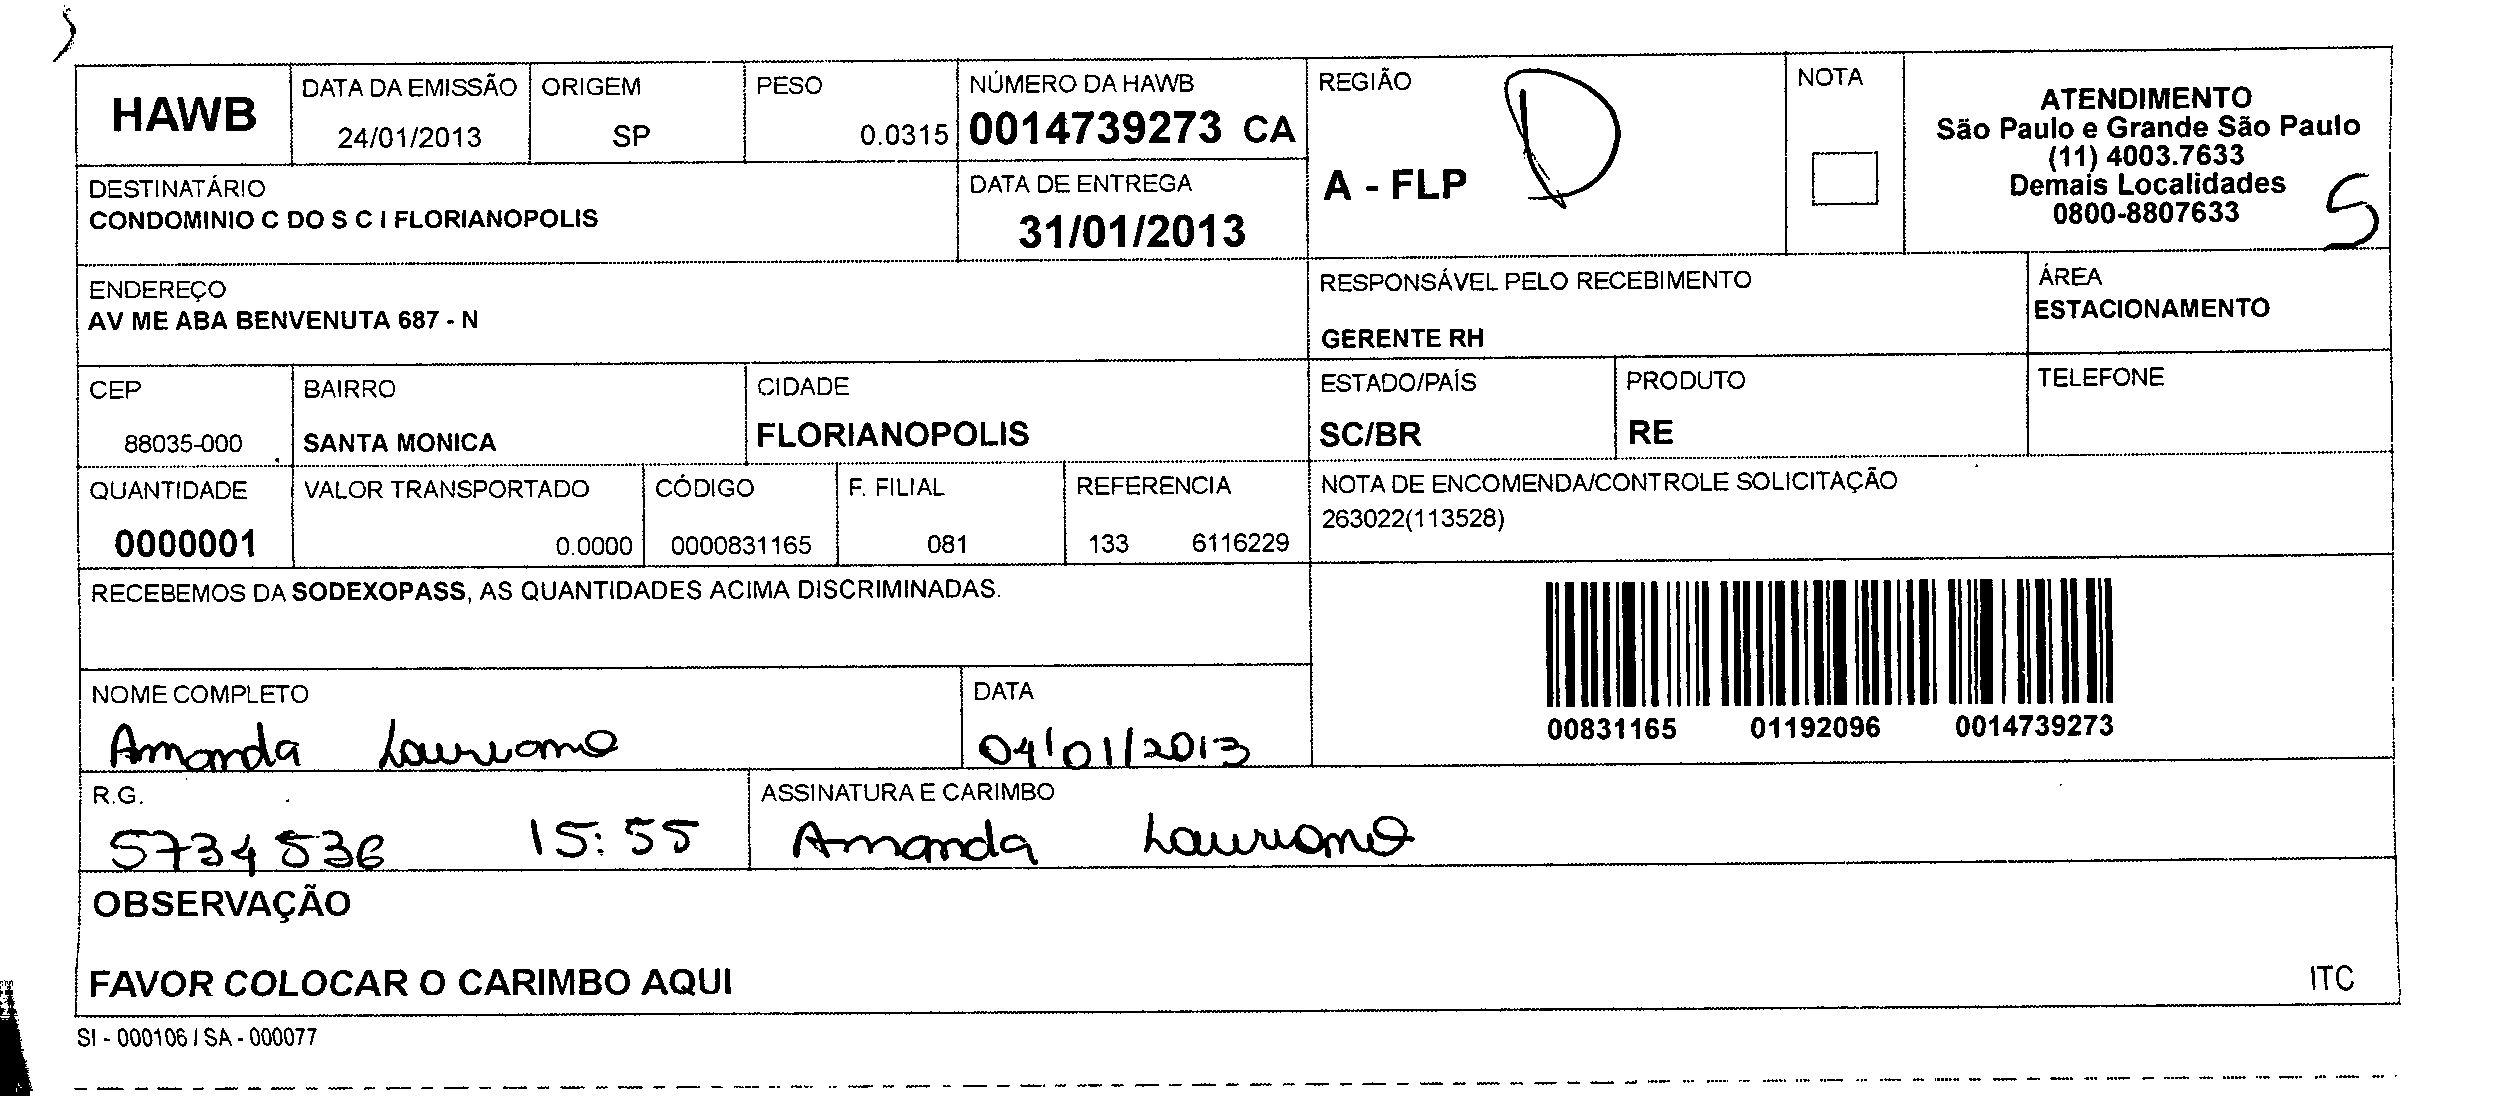 HAWB
DATA DA EMISSÃO
24/01/2013
ORIGEM
SP
PESO
0.0315
NÚMERO DA HAWB
0014739273 CA
REGIÃO
A - FLP
D
NOTA
ATENDIMENTO
São Paulo e Grande São Paulo
(11) 4003.7633
Demais Localidades
0800-8807633
5
DESTINATÁRIO
CONDOMINIO C DO S C I FLORIANOPOLIS
DATA DE ENTREGA
31/01/2013
ENDEREÇO
AV ME ABA BENVENUTA 687 - N
RESPONSÁVEL PELO RECEBIMENTO
GERENTE RH
ÁREA
ESTACIONAMENTO
CEP
88035-000
BAIRRO
SANTA MONICA
CIDADE
FLORIANOPOLIS
ESTADO/PAÍS
SC/BR
PRODUTO
RE
TELEFONE
QUANTIDADE
0000001
VALOR TRANSPORTADO
0.0000
CÓDIGO
0000831165
F. FILIAL
081
REFERENCIA
133 6116229
NOTA DE ENCOMENDA/CONTROLE SOLICITAÇÃO
263022(113528)
RECEBEMOS DA SODEXOPASS, AS QUANTIDADES ACIMA DISCRIMINADAS.
00831165 01192096 0014739273
NOME COMPLETO
Amanda Lauriano
DATA
04/01/2013
R.G.
5734536 15:55
ASSINATURA E CARIMBO
Amanda Lauriano
OBSERVAÇÃO
FAVOR COLOCAR O CARIMBO AQUI
ITC
SI - 000106 / SA - 000077